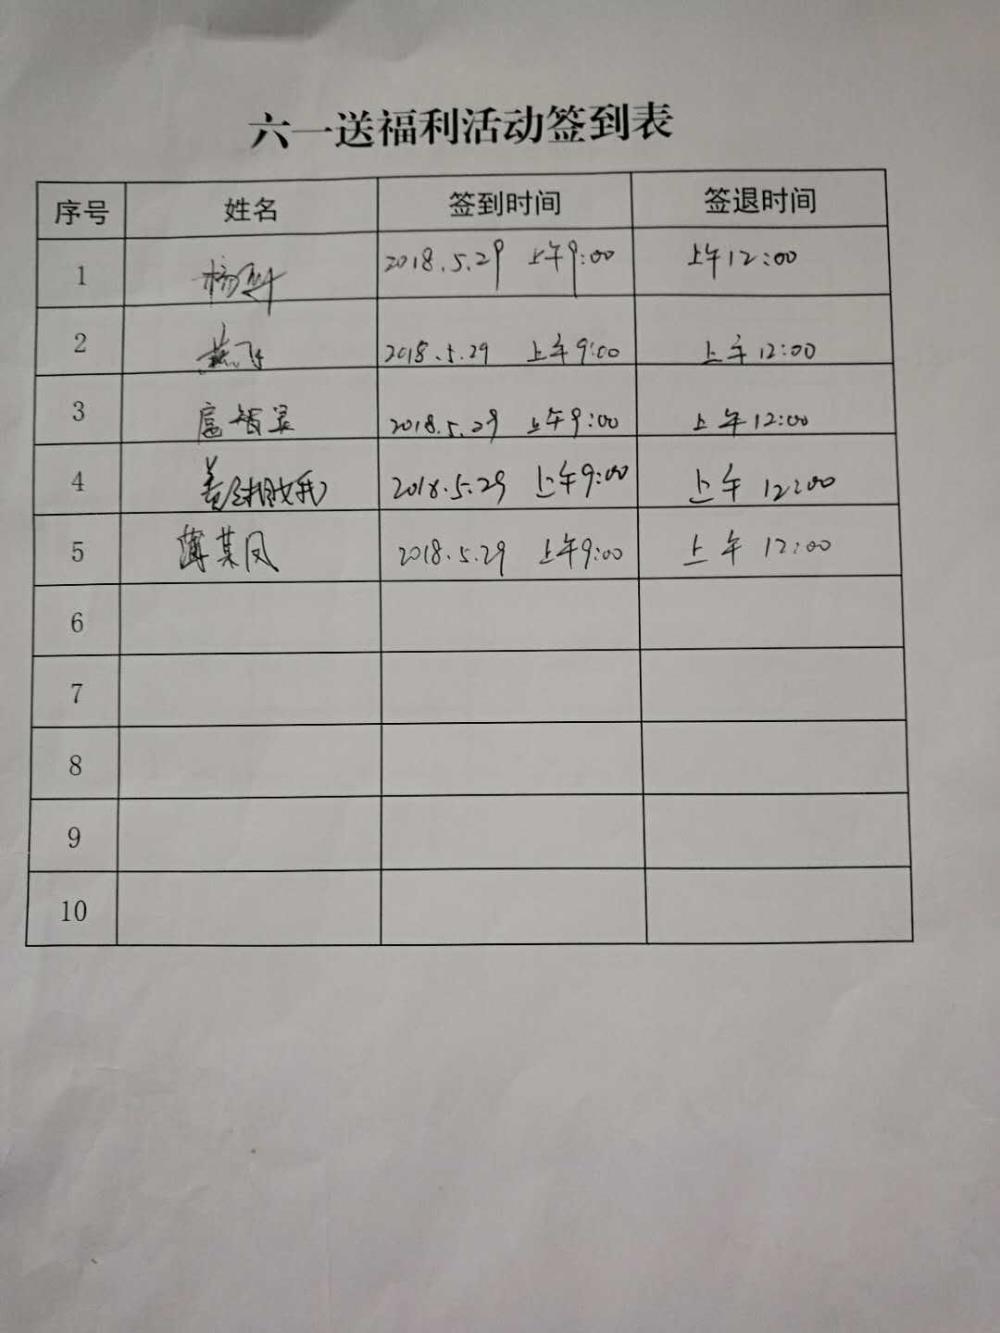 六一送福利活动签到表
序号 姓名 签到时间 签退时间
1 杨 2018.5.29 上午9:00 上午12:00
2 燕飞 2018.5.29 上午9:00 上午12:00
3 扈智 2018.5.29 上午9:00 上午12:00
4 2018.5.29 上午9:00 上午12:00
5 薄其凤 2018.5.29 上午9:00 上午12:00
6
7
8
9
10